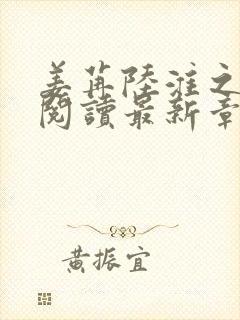 姜苒陸淮之
閱讀最新章
黃振宜